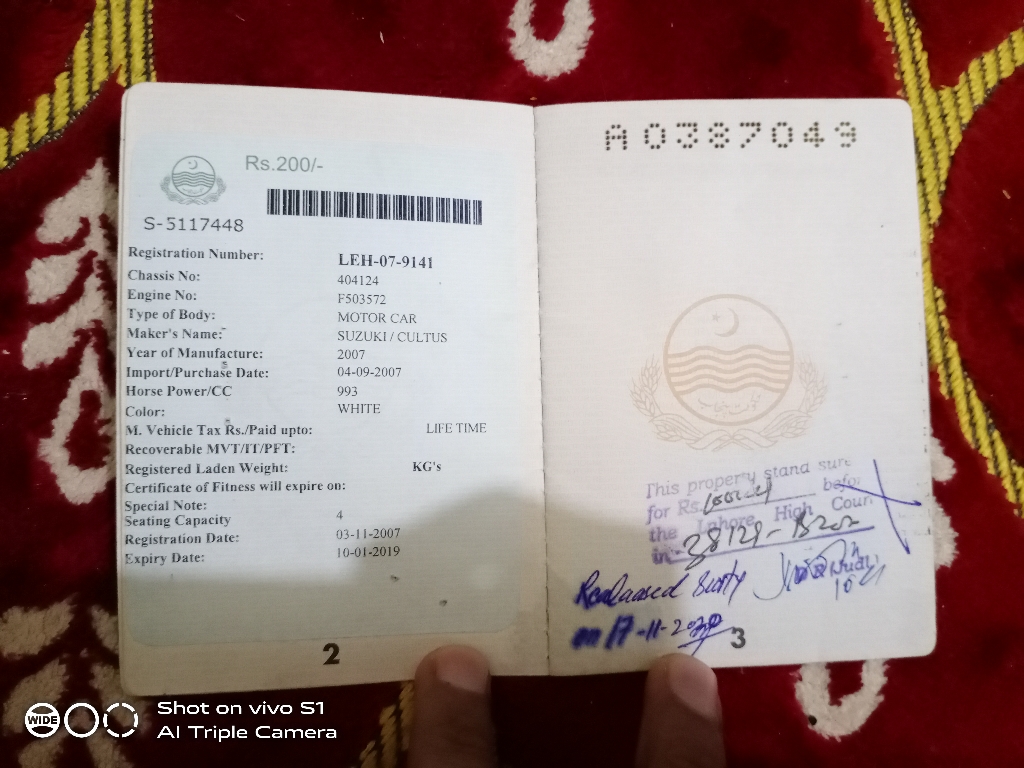 Rs.200/-
S-5117448
Registration Number: LEH-07-9141
Chassis No: 404124
Engine No: F503572
Type of Body: MOTOR CAR
Maker's Name: SUZUKI / CULTUS
Year of Manufacture: 2007
Import/Purchase Date: 04-09-2007
Horse Power/CC 993
Color: WHITE
M. Vehicle Tax Rs./Paid upto: LIFE TIME
Recoverable MVT/IT/PFT:
Registered Laden Weight: KG's
Certificate of Fitness will expire on:
Special Note:
Seating Capacity 4
Registration Date: 03-11-2007
Expiry Date: 10-01-2019
2
A0387049
This property stand sure
for Rs. befo
the Lahore High Cour
in
on 17-11-2020
3
WIDE
Shot on vivo S1
AI Triple Camera